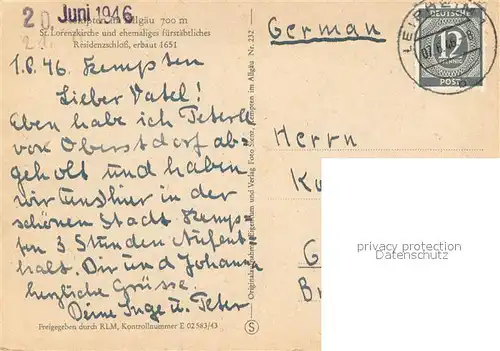 20. Juni 1946
Kempten im Allgäu 700 m
St. Lorenzkirche und ehemaliges fürstäbtliches
Residenzschloß, erbaut 1651
1.6.46. Kempten
Lieber Vatel!
Eben habe ich Peterle
von Oberstdorf ab-
geholt und haben
wir uns hier in der
schönen Stadt Kemp-
ten 3 Stunden Aufent
halt. Dir und Johanna
herzliche Grüsse.
Deine Inge u. Peter
Freigegeben durch RLM, Kontrollnummer E 02583/43
Originalaufnahme, Eigentum und Verlag Foto Kempten im Allgäu Nr. 232
S
German
DEUTSCHE
12
PFENNIG
POST
LEIPHEIM
Herrn
privacy protection
oldthing.de